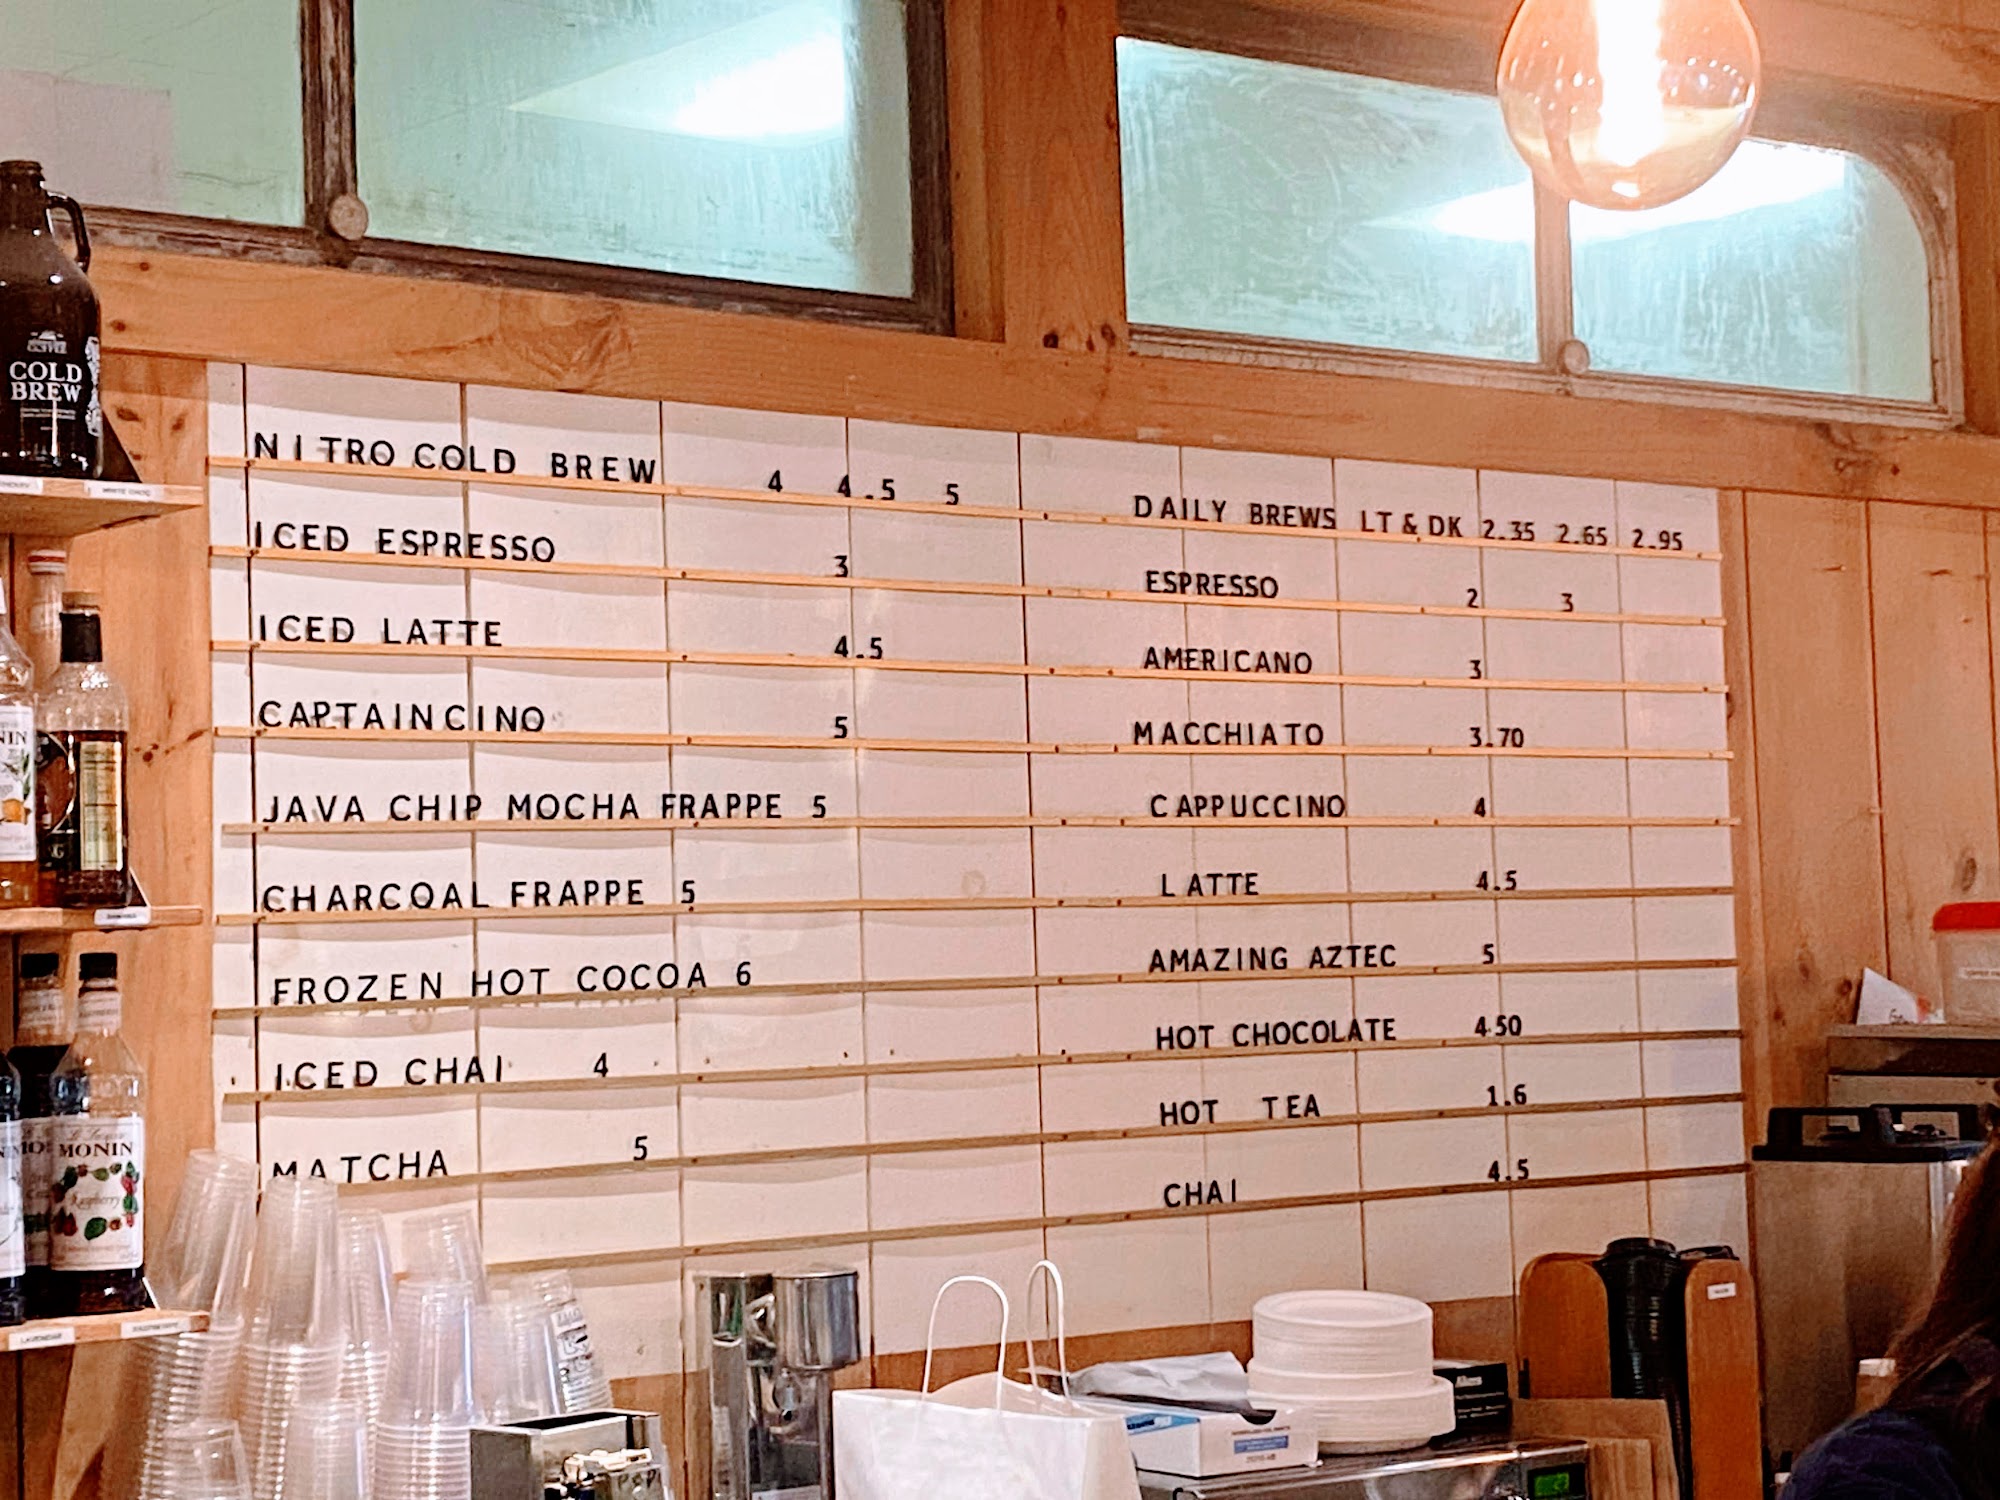 NITRO COLD BREW 4 4.5 5
ICED ESPRESSO 3
ICED LATTE 4.5
CAPTAINCINO 5
JAVA CHIP MOCHA FRAPPE 5
CHARCOAL FRAPPE 5
FROZEN HOT COCOA 6
ICED CHAI 4
MATCHA 5
DAILY BREWS LT & DK 2.35 2.65 2.95
ESPRESSO 2 3
AMERICANO 3
MACCHIATO 3.70
CAPPUCCINO 4
LATTE 4.5
AMAZING AZTEC 5
HOT CHOCOLATE 4.50
HOT TEA 1.6
CHAI 4.5
COFFEE
COLD
BREW
MONIN
Raspberry
LAVENDER